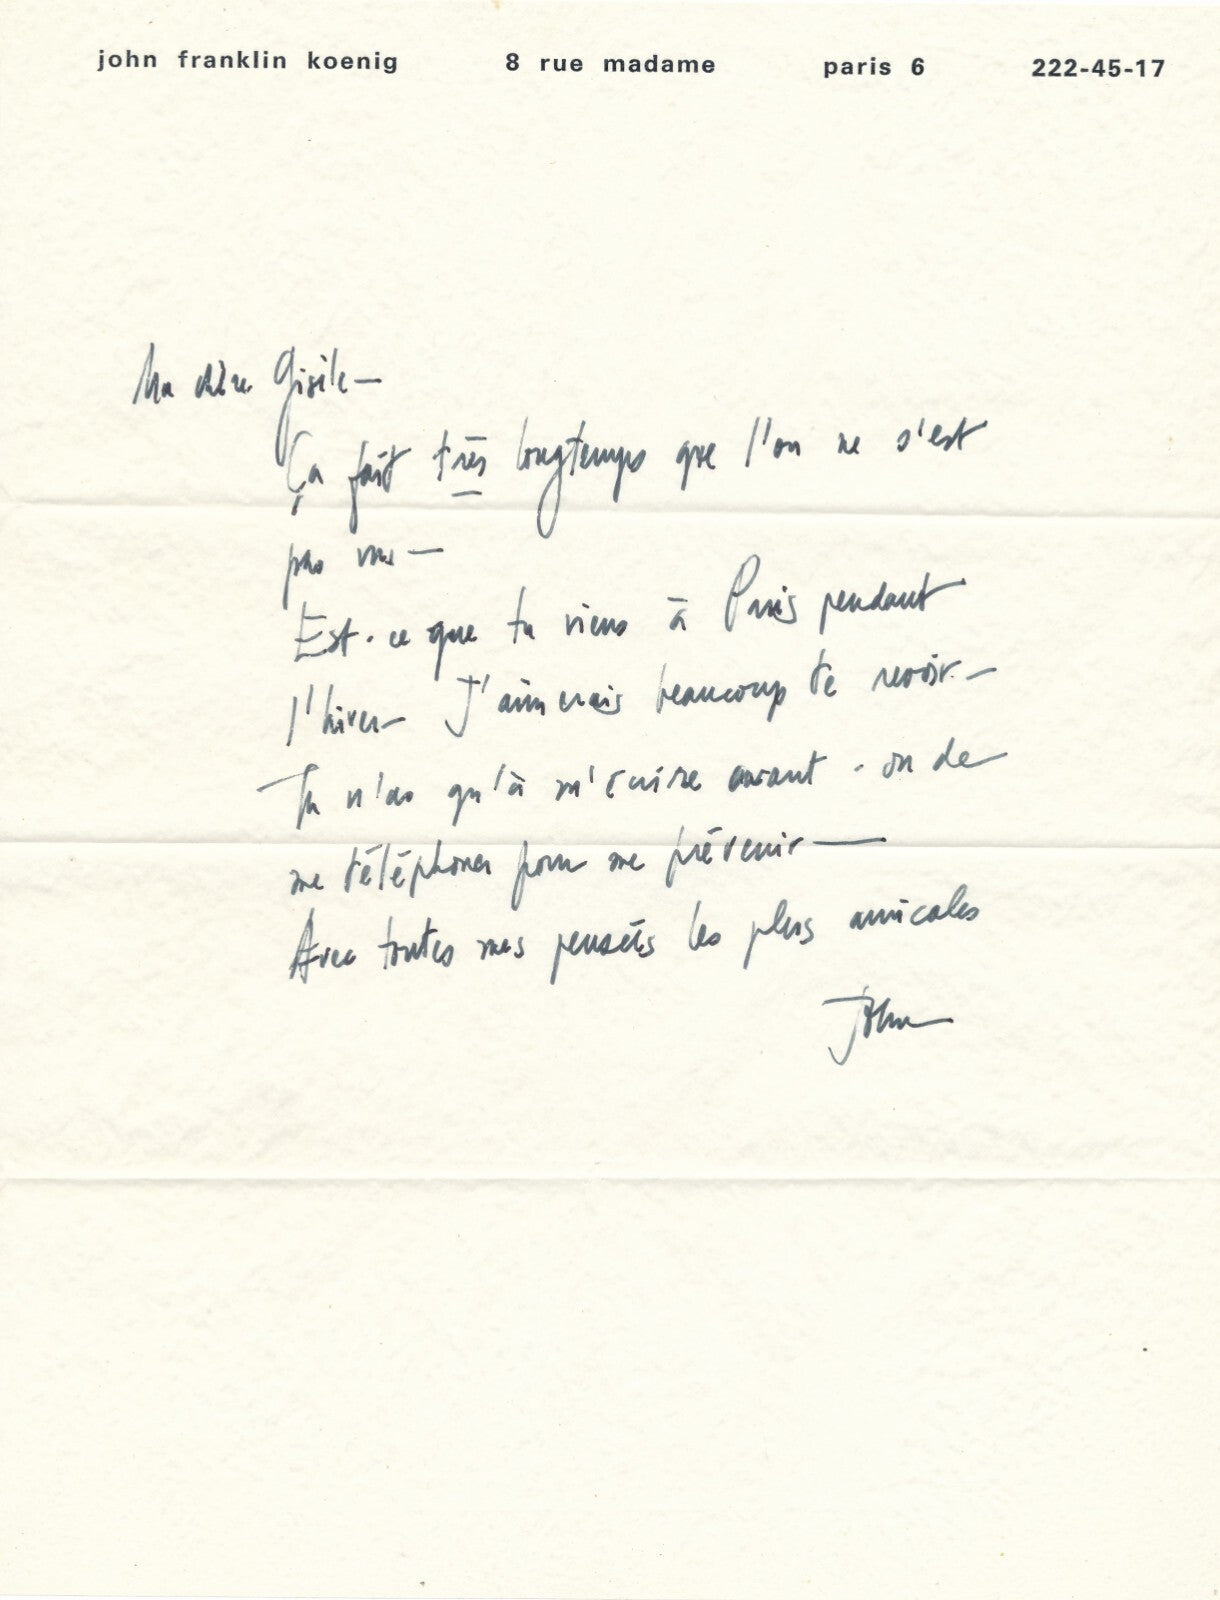 john franklin koenig 8 rue madame paris 6 222-45-17
Ma chère Gisèle —
Ça fait très longtemps que l'on ne s'est
pas vus —
Est-ce que tu viens à Paris pendant
l'hiver — J'aimerais beaucoup te revoir. —
Tu n'as qu'à m'écrire avant - ou de
me téléphoner pour me prévenir —
Avec toutes mes pensées les plus amicales
John